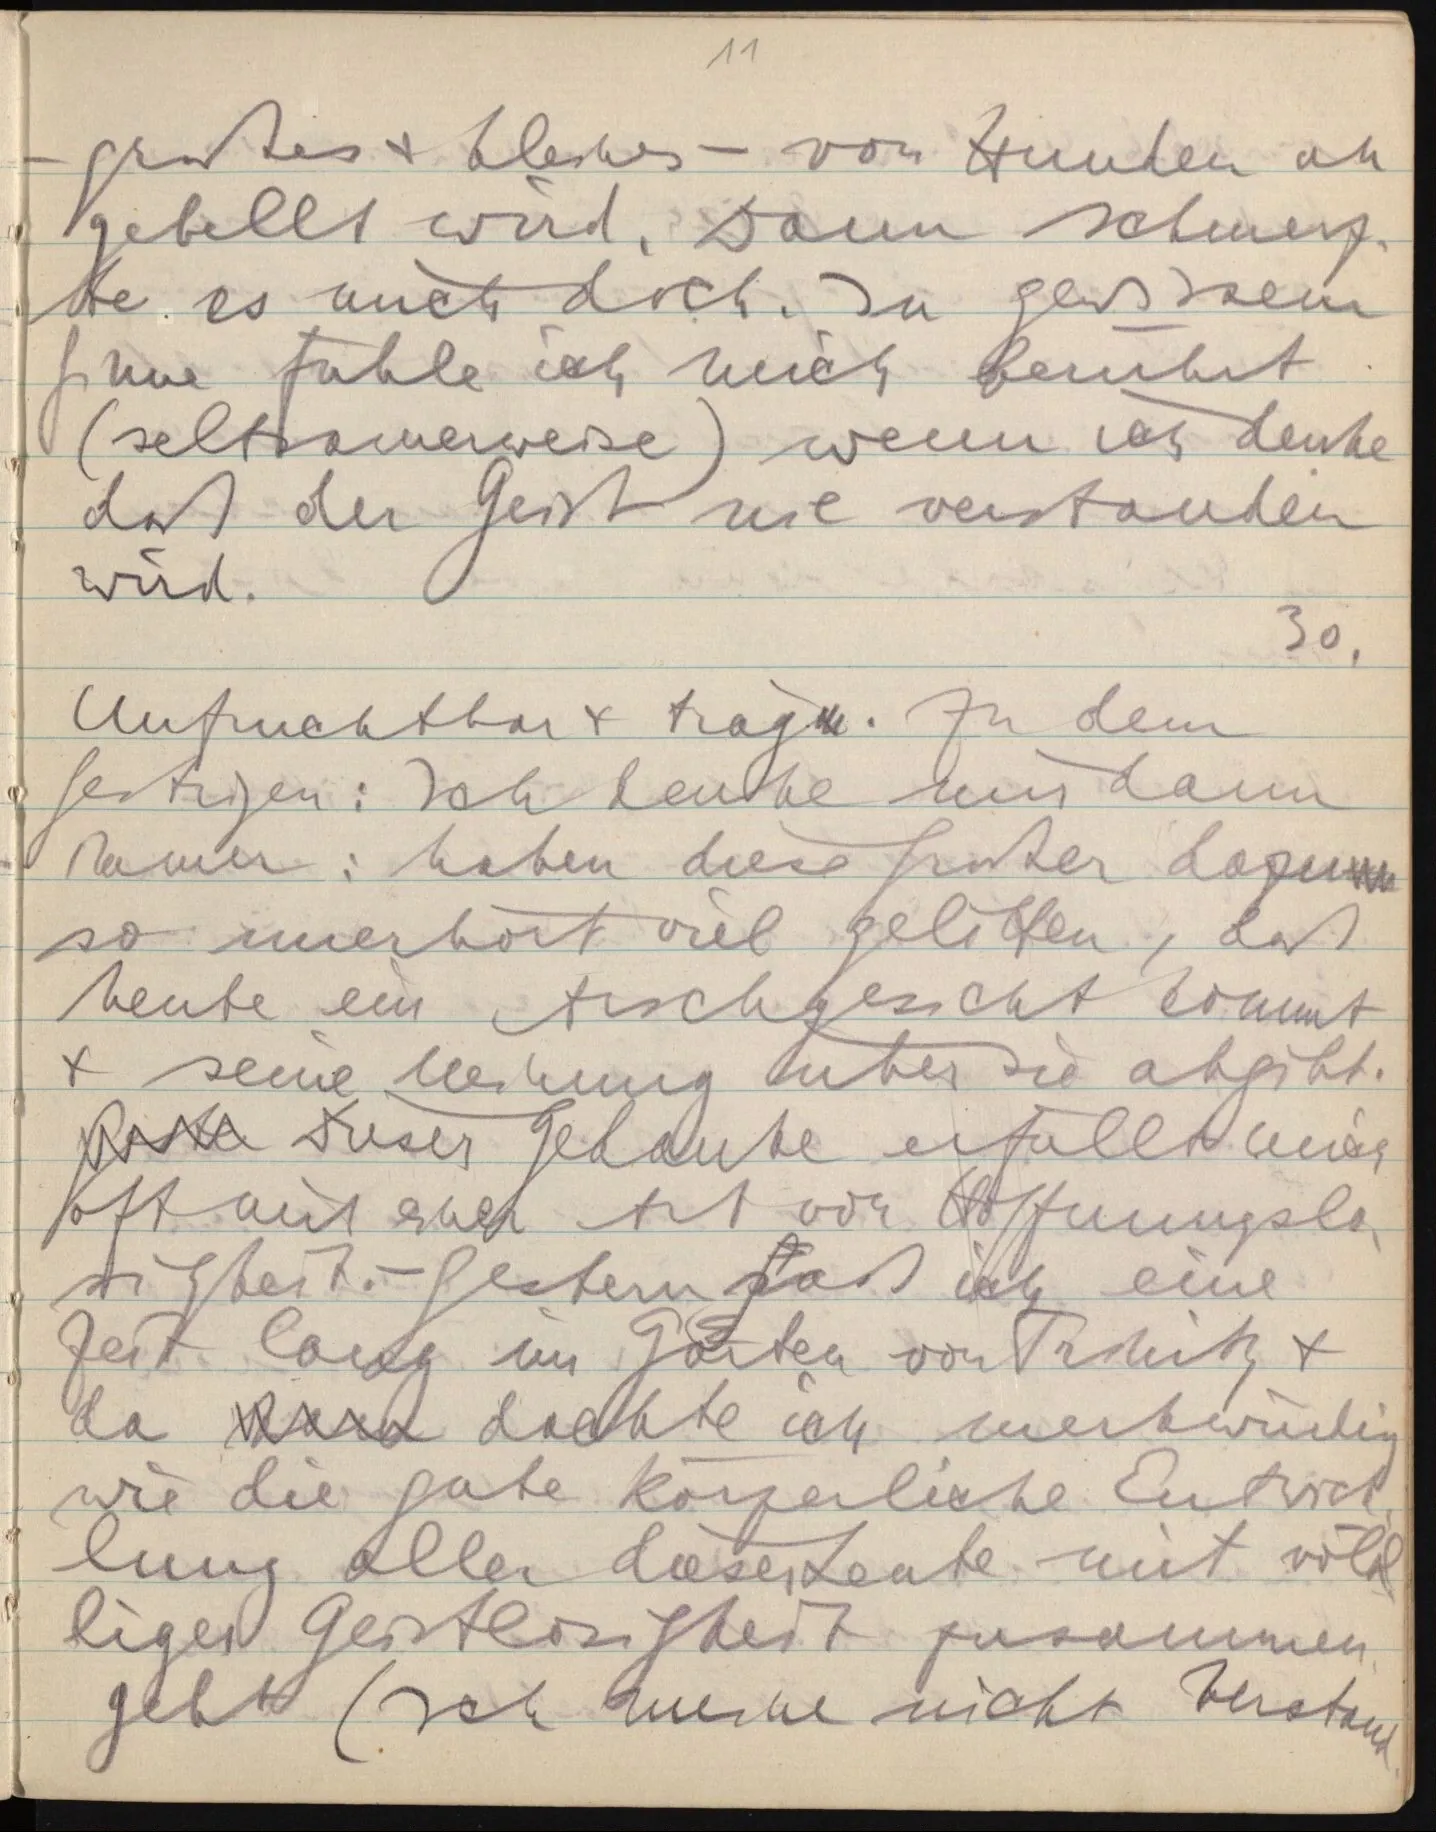 11
– großes & kleines – von Hunden an
gebellt wird. Dann schmerz-
te es mich doch. In gewissem
Sinne fühle ich mich berührt
(seltsamerweise) wenn ich denke
daß der Geist nie verstanden
wird.
30.
Unfruchtbar & träge. Zu dem
Gestrigen: Ich denke mir dann
immer: haben diese Großen dazu
so unerhört viel gelitten, daß
heute ein Arschgesicht kommt
& seine Meinung über sie abgibt.
Dieser Gedanke erfüllt mich
oft mit einer Art von Hoffnungslo
sigkeit. – Gestern saß ich eine
Zeit lang im Garten von &
da dachte ich merkwürdig
wie die gute körperliche Entwick
lung aller dieser Leute mit völl
liger Geistlosigkeit zusammen
geht (Ich meine nicht Verstand